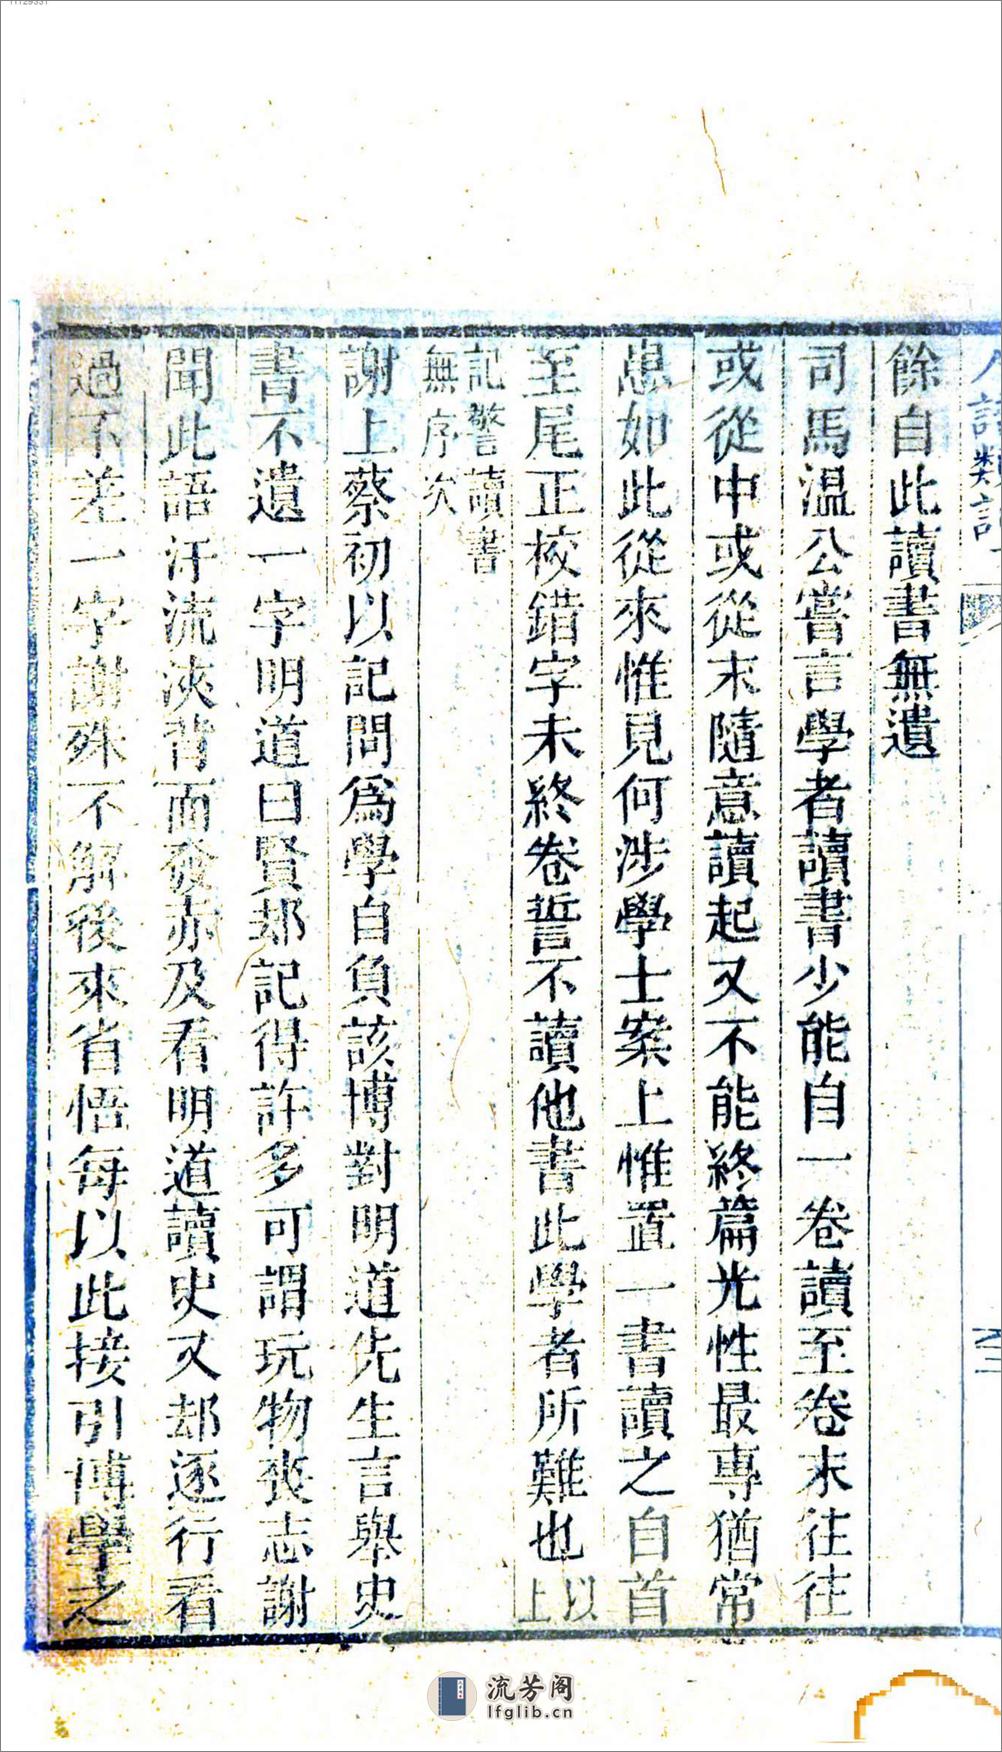 餘自此讀書無遺
司馬溫公嘗言學者讀書少能自一卷讀至卷末往往
或從中或從末隨意讀起又不能終篇光性最專猶常
患如此從來惟見何涉學士案上惟置一書讀之自首
至尾正校錯字未終卷誓不讀他書此學者所難也以上
記警讀書
無序次
謝上蔡初以記問爲學自負該博對明道先生言舉史
書不遺一字明道曰賢却記得許多可謂玩物喪志謝
聞此語汗流浹背面發赤及看明道讀史又却逐行看
過不差一字謝殊不解後來省悟每以此接引博學之
流芳阁
lfglib.cn